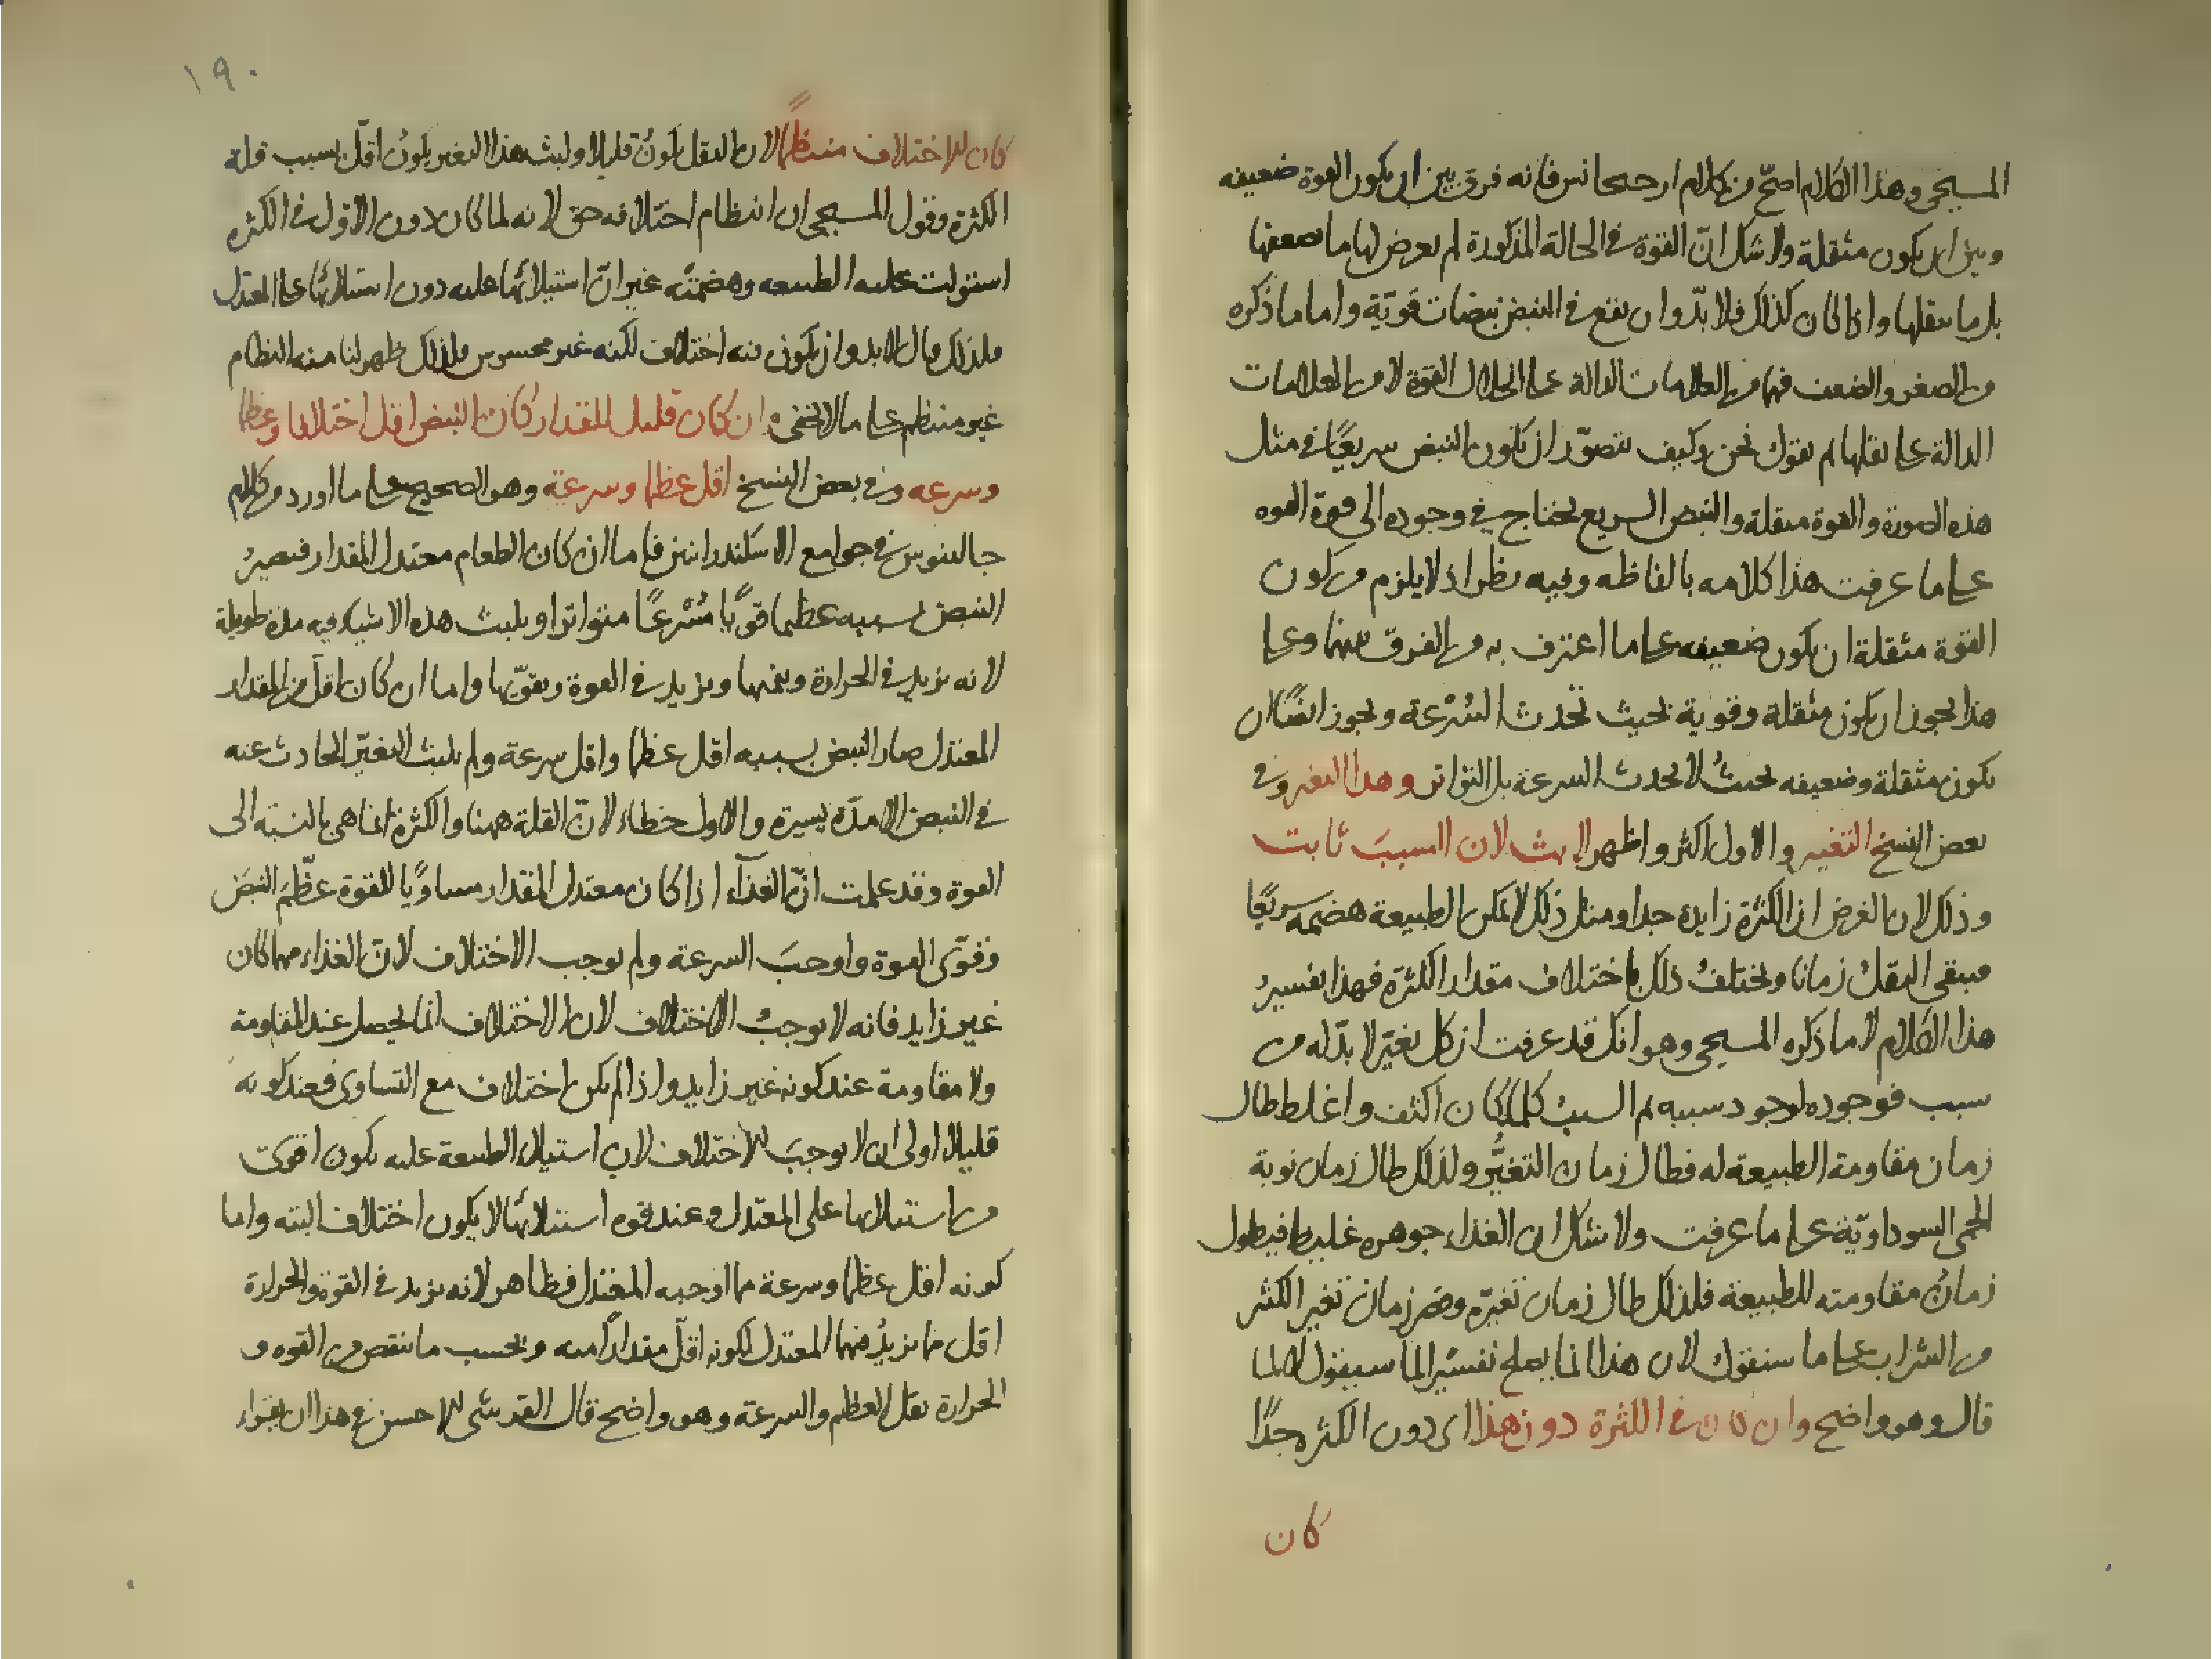 المسيحى وهذا الكلام اصحّ من كلام ارجيجانس فانه فرق بين ان يكون القوة ضعيفه
وبين ان يكون مثقلة ولا شك انّ القوة فى الحالة المذكورة لم يعرض لها ما يضعفها
بل ما يثقلها واذا كان كذلك فلا بدّ وان يقع فى النبض نبضات قويّة واما ما ذكره
من الصغر والضعف فهما من العلامات الدالة على انحلال القوة لا من العلامات
الدالة على ثقلها ثم نقول نحن وكيف يتصوّر ان يكون النبض سريعًا فى مثل
هذه الصورة والقوة مثقلة والنبض السريع يحتاج فى وجوده الى قوة القوه
على ما عرفت هذا كلامه بالفاظه وفيه نظر اذ لا يلزم من كون
القوة مثقلة ان يكون ضعيفه على ما اعترف به من الفرق بينهما وعلى
هذا يجوز ان يكون مثقلة وقوية بحيث تحدث السُرْعة ويجوز ايضًا ان
يكون مثقلة وضعيفه بحيثُ لا يحدث السرعة بل التواتر وهذا التغير وفى
بعض النسخ التغيير والاول اكثر واظهر لابث لان السببَ ثابت
وذلك لان الغرض ان الكثرة زايدة جدا ومثل ذلك لا يمكن الطبيعة هضمه سريعًا
فيبقى الثقل زمانا ويختلفُ ذلك باختلاف مقدار الكثرة فهذا تفسيرُ
هذا الكلام لا ما ذكره المسيحى وهو انك قد عرفت ان كل تغيّر لا بدّ له من
سبب فوجوده لوجود سببه ثم السبب كلما كان اكثف واغلظ طال
زمان مقاومة الطبيعة له فطال زمان التغيُّر ولذلك طال زمان نوبة
الحمى السوداويّة على ما عرفت ولا شك ان الغذاء جوهره غليظ فيطول
زمانُ مقاومته للطبيعة فلذلك طال زمان تغيّره وقصر زمان تغير الكثير
من الشراب على ما سنقول لان هذا انما يصلح تفسيرًا لما سيقول لا لما
قال وهو واضح وان كان فى الكثرة دون هذا اى دون الكثرة جدًا
كان
١٩٠
كان الاختلاف منتظمًا لان الثقل يكونُ قليلا ولبث هذا التغير يكونُ اقلّ بسبب قلة
الكثرة وقول المسيحى ان انتظام اختلافه حق لانه لما كان دون الاول فى الكثره
استولت عليه الطبيعه وهضمته غير انّ استيلائها عليه دون استيلائها على المعتدل
ولذلك قال لا بد وان يكون فيه اختلاف لكنه غير محسوس ولذلك ظهر لنا منه النظام
غير منتظم على ما لا يخفى وان كان قليل المقدار كان النبض اقل اختلافا وعظما
وسرعه وفى بعض النسخ اقل عظما وسرعة وهو الصحيح على ما اورد من كلام
جالينوس فى جوامع الاسكندرانيين فاما ان كان الطعام معتدل المقدار فيصيرُ
النبض بسببه عظيما قويًا مُسْرعًا متواترا ويلبث هذه الاشياء فيه مدة طويلة
لانه يزيد فى الحرارة وينميها ويزيد فى القوة ويقوّيها واما ان كان اقلّ من المقدار
المعتدل صار النبض بسببه اقل عظما واقل سرعة ولم يلبث التغيّر الحادث عنه
فى النبض الا مدّة يسيرة والاول خطاء لانّ القلة ههنا والكثرة انما هى بالنسبة الى
القوة وقد علمت انّ الغذآء اذا كان معتدل المقدار مساويًا للقوة عظّمَ النبضَ
وقوّى القوة واوجبَ السرعة ولم يوجب الاختلاف لانّ الغذاء مهما كان
غير زايد فانه لا يوجبُ الاختلاف لان الاختلاف انما يحصل عند المقاومة
ولا مقاومة عند كونه غير زايد واذا لم يكن اختلاف مع التساوى فعند كونه
قليلا اولى ان لا يوجبَ الاختلاف لان استيلاء الطبيعة عليه يكون اقوى
من استيلائها على المعتدل وعند قوة استيلائها لا يكون اختلاف البته واما
كونه اقل عظما وسرعة مما اوجبه المعتدل فظاهر لانه يزيد فى القوة والحرارة
اقل مما يزيدُ فيهما المعتدل لكونه اقلّ مقدارًا منه وبحسب ما ينقص من القوه و
الحرارة يقل العظم والسرعة وهو واضح قال القرشى الاحسن فى هذا ان يقراء